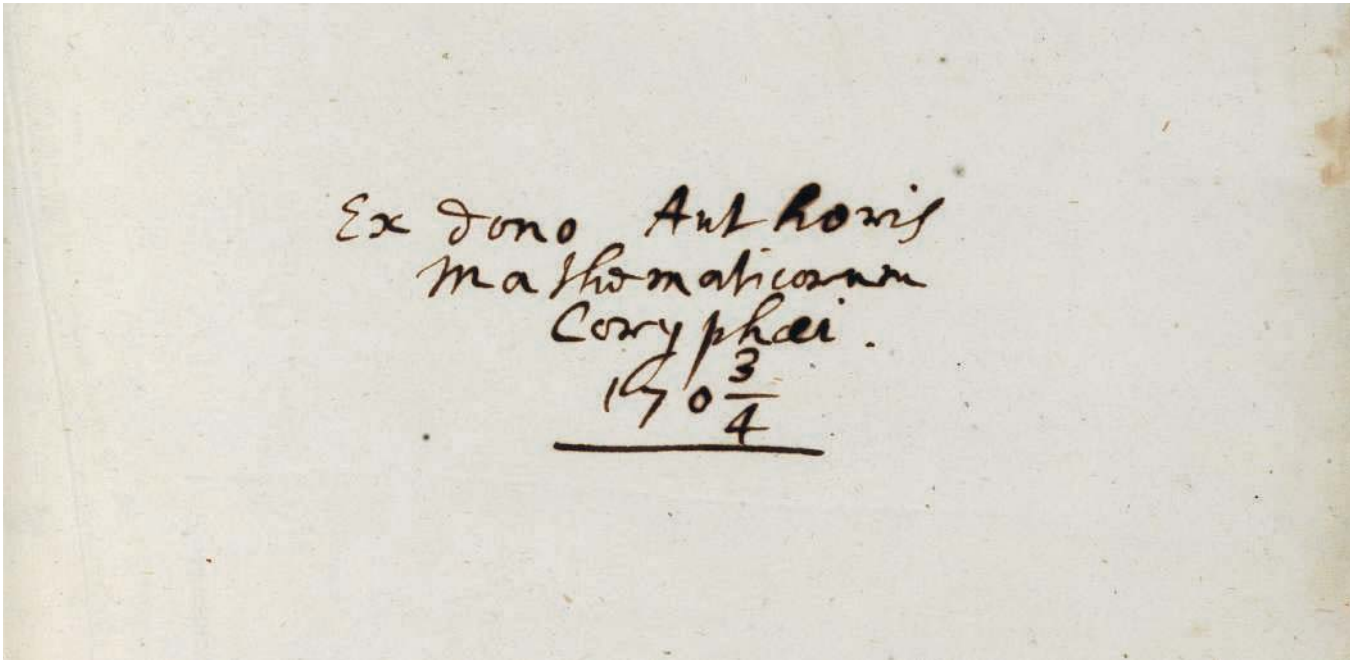 Ex dono Authoris
Mathematicorum
Coryphæi.
170 3/4